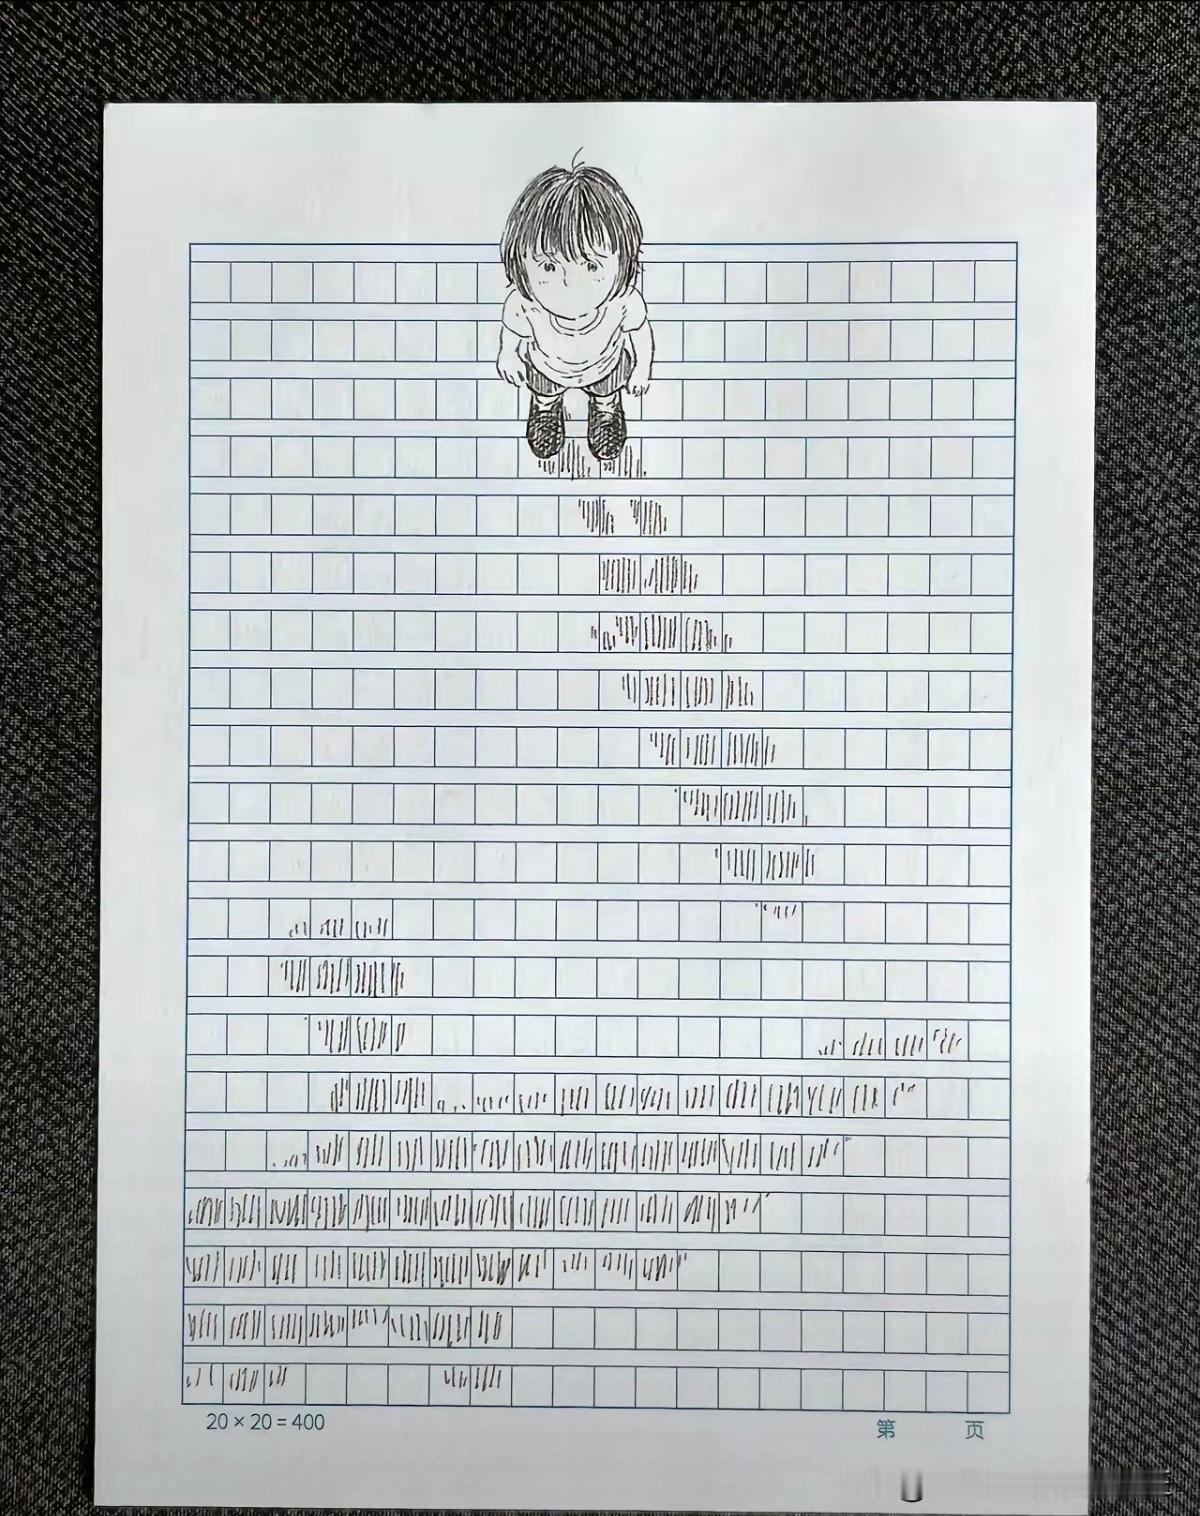 20×20=400
第 页